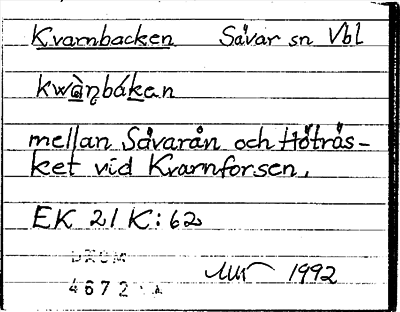 Kvarnbacken Sävar sn Vbl
kwàṇbáken
mellan Sävarån och Höträs-
ket vid Kvarnforsen.
EK 21 K:62
DAUM
4672
1992